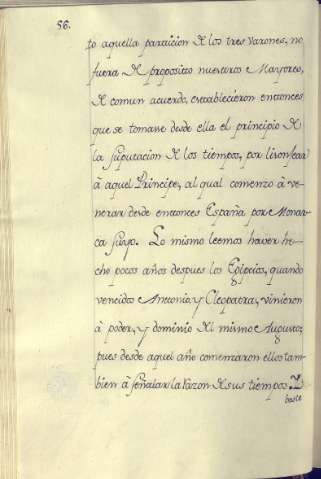 56.
to aquella particion de los tres Varones, no
fuera de proposito nuestros Mayores,
de comun acuerdo, establecieron entonces
que se tomase desde ella el principio de
la suputacion de los tiempos, por lisonjear
à aquel Principe, al qual comenzo à ve-
nerar desde entonces España por Monar-
ca suyo. Lo mismo leemos haver he-
cho pocos años despues los Egipcios, quando
vencidos Antonio, y Cleopatra, vinieron
à poder, y dominio del mismo Augusto;
pues desde aquel año comenzaron ellos tam-
bien à señalar la razon de sus tiempos. Y
baste